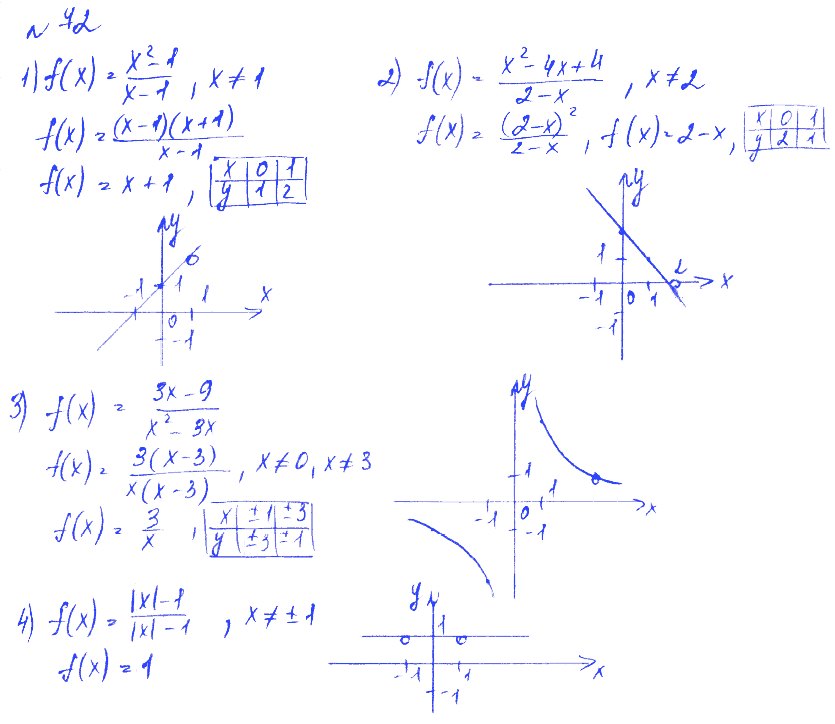 № 72
1) f(x) = (x² - 1)/(x - 1), x ≠ 1
f(x) = ((x-1)(x+1))/(x-1)
f(x) = x + 1, | x | 0 | 1 |
| y | 1 | 2 |
y
-1 1 1 x
0
-1
2) f(x) = (x² - 4x + 4)/(2 - x), x ≠ 2
f(x) = (2-x)²/(2-x), f(x) = 2-x, | x | 0 | 1 |
| y | 2 | 1 |
y
1 2 x
-1 0 1
-1
3) f(x) = (3x - 9)/(x² - 3x)
f(x) = (3(x-3))/(x(x-3)), x ≠ 0, x ≠ 3
f(x) = 3/x, | x | ±1 | ±3 |
| y | ±3 | ±1 |
y
1 1
-1 0 x
-1
4) f(x) = (|x|-1)/(|x|-1), x ≠ ±1
f(x) = 1
y
1
-1 1 x
-1